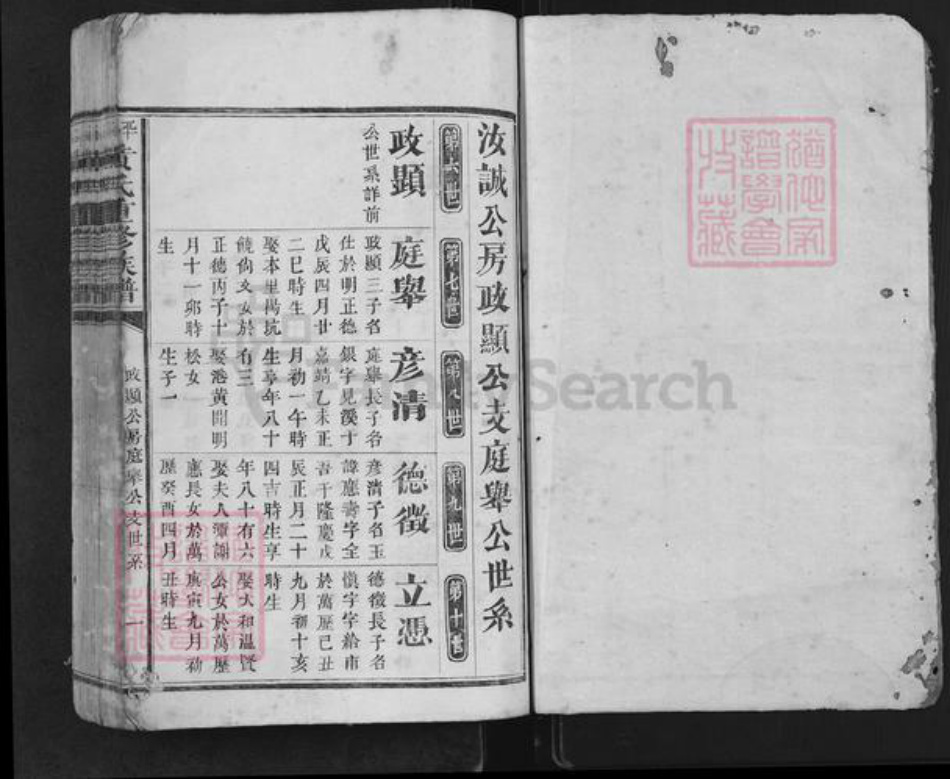 汝誠公房政顯公支庭舉公世系
第六世
政顯
公世系詳前
第七世
庭舉
政顯三子名
仕於明正德
戊辰四月廿
二巳時生
娶本里楊坑
饒尚文女於
正德丙子十
月十一卯時
生
第八世
彥清
庭舉長子名
銀字見溪于
嘉靖乙未正
月初一午時
生享年八十
有三
娶港黃開明
松女
生子一
第九世
德徵
彥清子名玉
諱應壽字全
吾于隆慶戊
辰正月二十
四吉時生享
年八十有六
娶夫人潭謝
應長女於萬
歷癸酉四月
第十世
立憑
德徵長子名
慎字字給市
於萬歷己丑
九月初十亥
時生
娶大和溫賢
公女於萬歷
庚寅九月初
丑時生
黃氏重修族譜
政顯公房庭舉公支世系
一
FamilySearch
譜學會
收藏